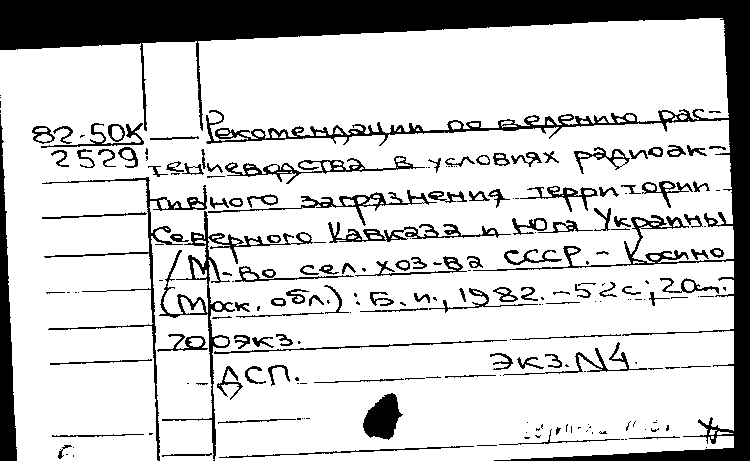 82-50К Рекомендации по ведению рас-
2529 тениеводства в условиях радиоак-
тивного загрязнения территории
Северного Кавказа и Юга Украины
/М-во сел. хоз-ва СССР.- Косино
(Моск. обл.): Б.и., 1982.-52с; 20см.
700экз.
ДСП. Экз.N4.